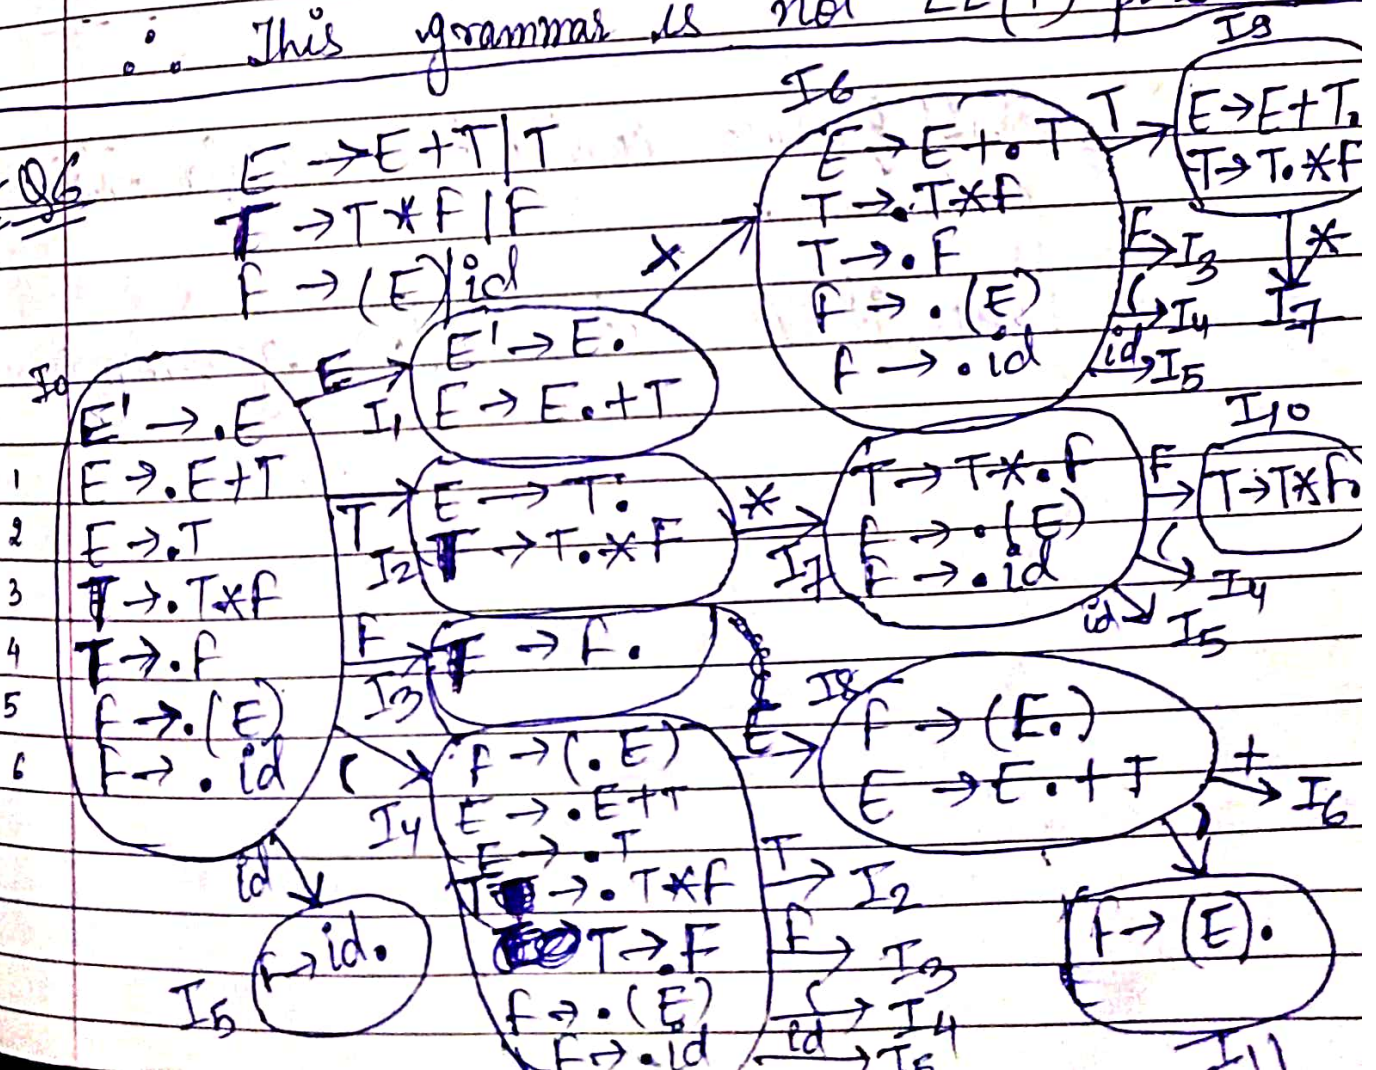 ∴ This grammar is not LL(1)
Q6
E → E+T|T
T → T*F|F
F → (E)|id
I0
E' → .E
1 E → .E+T
2 E → .T
3 T → .T*F
4 T → .F
5 F → .(E)
6 F → .id
E
I1
E' → E.
E → E.+T
T
I2
E → T.
T → T.*F
F
I3
T → F.
(
I4
F → (.E)
E → .E+T
E → .T
T → .T*F
T → .F
F → .(E)
F → .id
id
I5
F → id.
I6
E → E+.T
T → .T*F
T → .F
F → .(E)
F → .id
T
I9
E → E+T.
T → T.*F
*
I7
F → I3
( → I4
id → I5
*
I7
T → T*.F
F → .(E)
F → .id
F
I10
T → T*F.
( → I4
id → I5
E
I8
F → (E.)
E → E.+T
+ → I6
)
F → (E).
I11
T → I2
F → I3
( → I4
id → I5